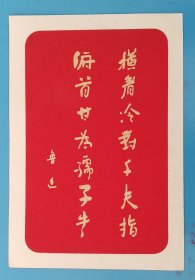 横眉冷对千夫指
俯首甘为孺子牛
鲁迅